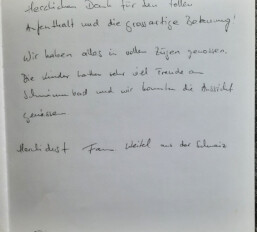 Herzlichen Dank für den tollen
Aufenthalt und die grossartige Betreuung!
Wir haben alles in vollen Zügen genossen.
Die Kinder hatten sehr viel Freude am
Schwimmbad und wir konnten die Aussicht
geniessen.
Fam. aus der Schweiz